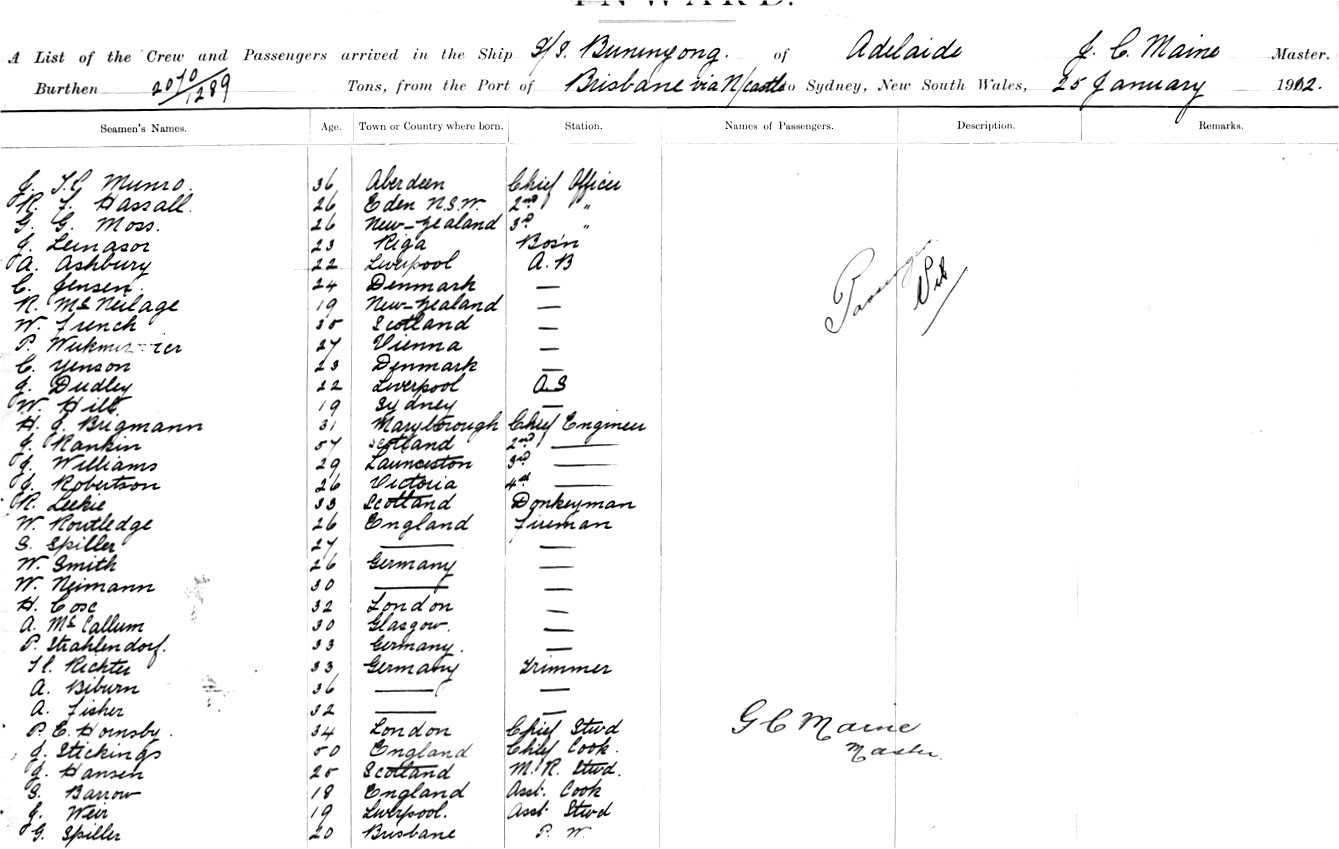 INWARD.
A List of the Crew and Passengers arrived in the Ship S/S. Buninyong. of Adelaide J. C. Maine Master.
Burthen 2070/1289 Tons, from the Port of Brisbane via N/castle to Sydney, New South Wales, 25 January 1902.
Seamen's Names. Age. Town or Country where born. Station. Names of Passengers. Description. Remarks.
Munro. 36 Aberdeen Chief Officer
R. F. Hassall. 26 Eden N.S.W. 2nd "
G. G. Moss. 26 New-Zealand 3rd "
J. 23 Riga Bos'n
A. Ashbury 22 Liverpool A.B
C. Jensen. 24 Denmark —
R. McNeilage 19 New-Zealand —
W. French 30 Scotland —
P. 27 Vienna —
C. Yenson 23 Denmark —
J. Dudley 22 Liverpool A.S
W. Hill. 19 Sydney —
H. J. Brigmann 31 Maryborough Chief Engineer
J. Rankin 57 Scotland 2nd —
J. Williams 29 Launceston 3rd —
J. Robertson 26 Victoria 4th —
R. Leekie 33 Scotland Donkeyman
W. Routledge 26 England Fireman
S. Spiller 27 — —
W. Smith 26 Germany —
W. Neimann 30 — —
H. Cosc 32 London —
A. McCallum 30 Glasgow. —
P. Strahlendorf. 33 Germany. —
Richter 33 Germany Trimmer
A. Biburn 36 — —
A. Fisher 32 — —
P. E. Hornsby. 34 London Chief Stwd
J. Stickings 50 England Chief Cook.
J. Hansen 25 Scotland M. R. Stwd.
S. Barrow 18 England Asst. Cook
J. Weir 19 Liverpool. Asst Stwd
G. Spiller 20 Brisbane P. W.
Passengers
Nil
G C Maine
Master.